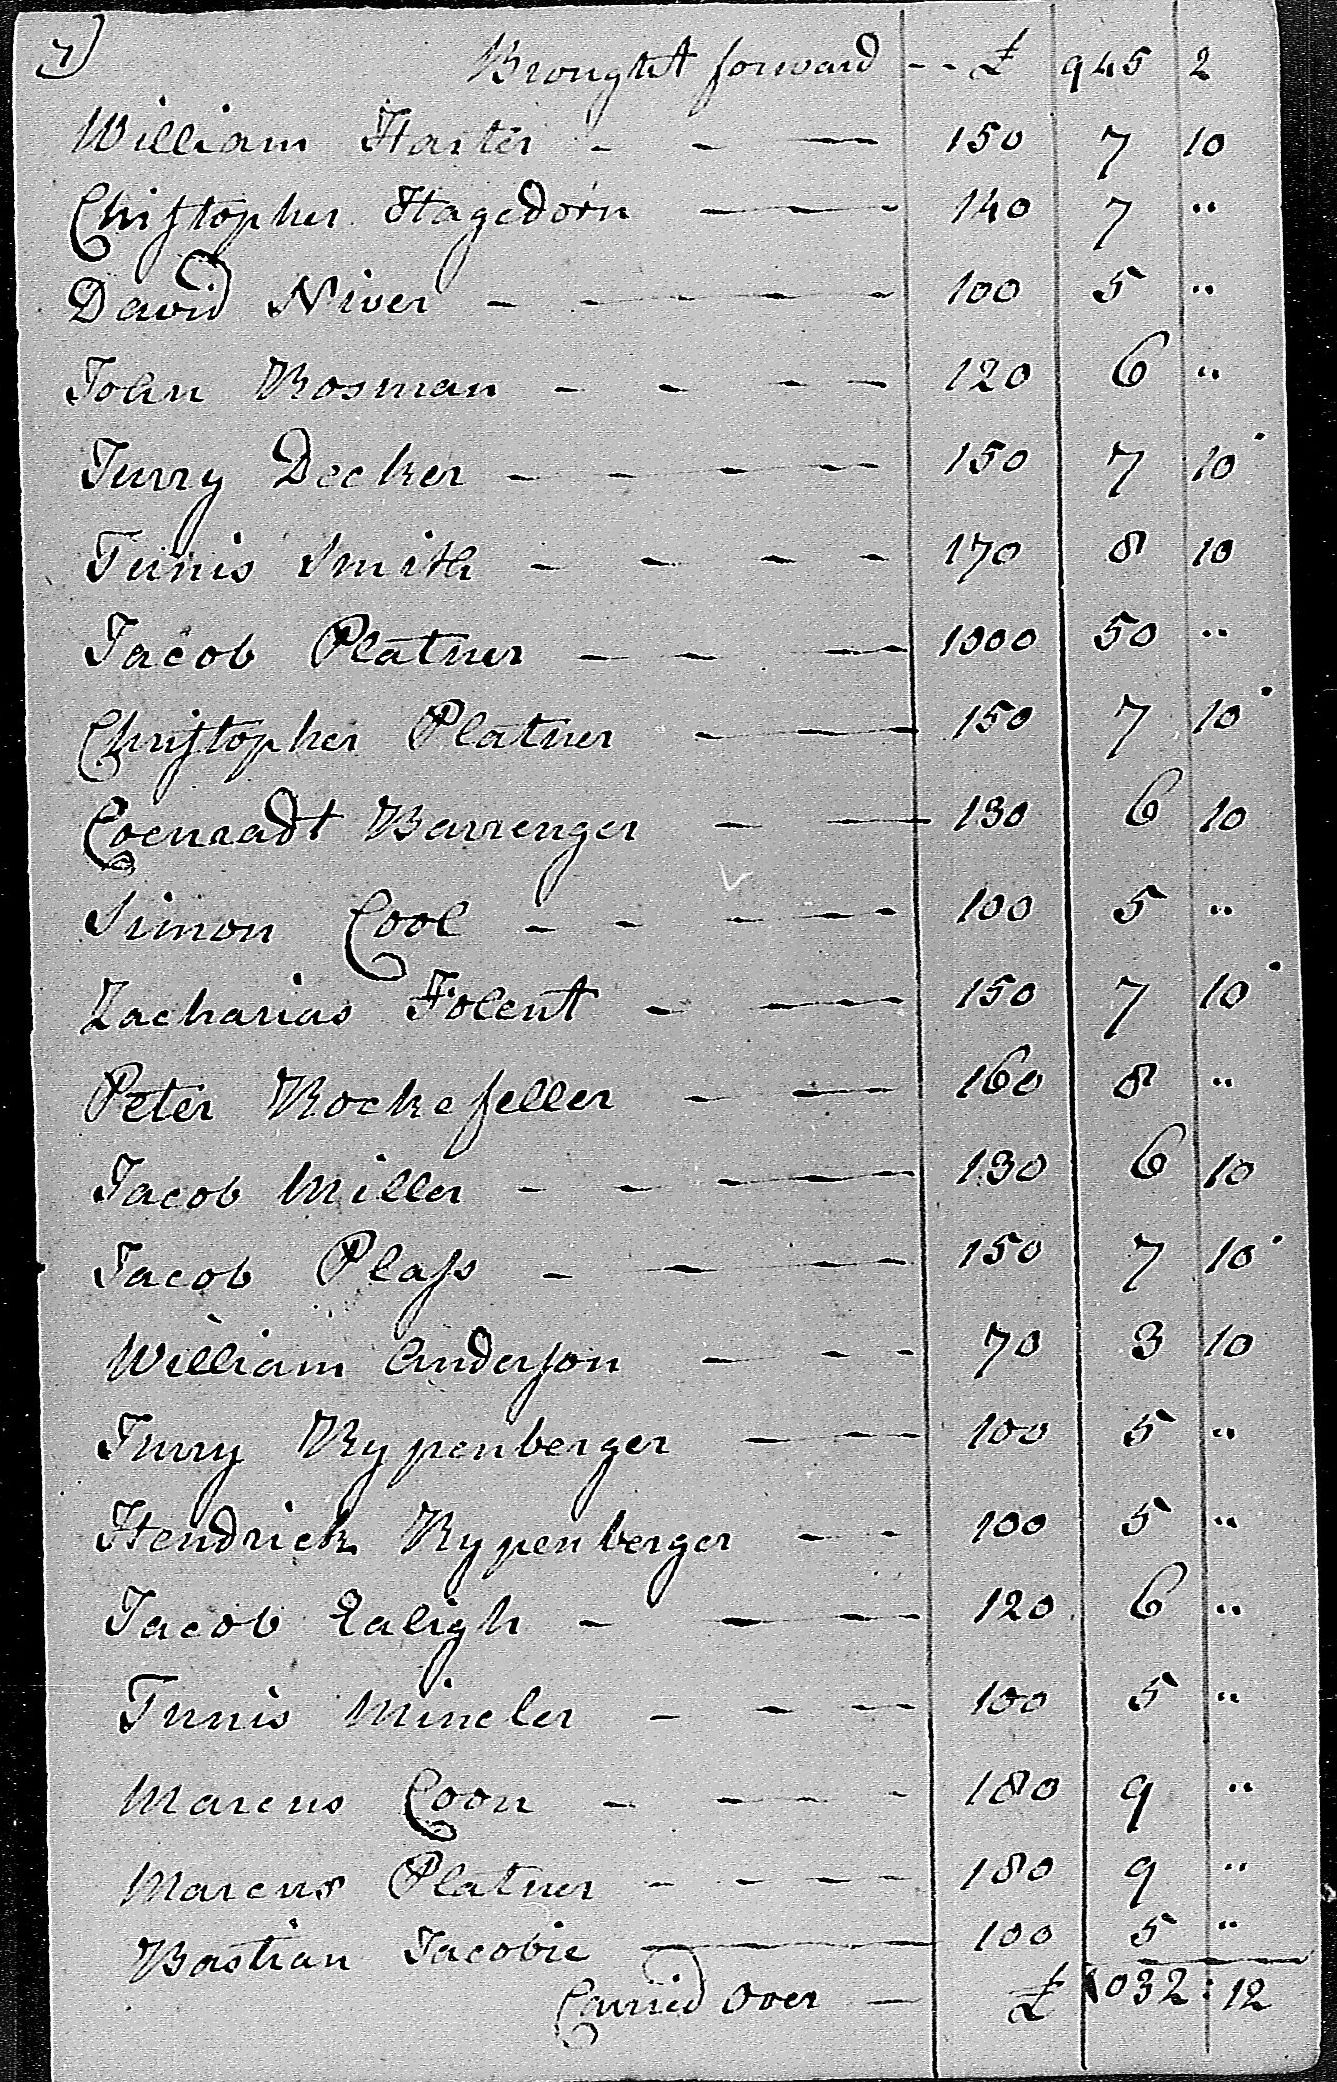 7)
Brought forward -- £ 945 2
William Harter - - — 150 7 10
Christopher Hagedorn — 140 7 "
David Niver - — 100 5 "
John Bosman - - - - 120 6 "
Jurry Decker - - — 150 7 10
Tunis Smith - - - - 170 8 10
Jacob Platner — 1000 50 "
Christopher Platner — 150 7 10
Coenraadt Barrenger — 130 6 10
Simon Cool - - — 100 5 "
Zacharias Folent - — 150 7 10
Peter Rockefeller - — 160 8 "
Jacob Miller - - — 130 6 10
Jacob Plass - — 150 7 10
William Anderson - - - 70 3 10
Jurry Rypenberger — 100 5 "
Hendrick Rypenberger - - 100 5 "
Jacob Ealigh - — 120 6 "
Tunis Mincler - - - 100 5 "
Marcus Coon - - - 180 9 "
Marcus Platner - - - - 180 9 "
Bastian Jacobie — 100 5 "
Carried Over — £ 1032:12